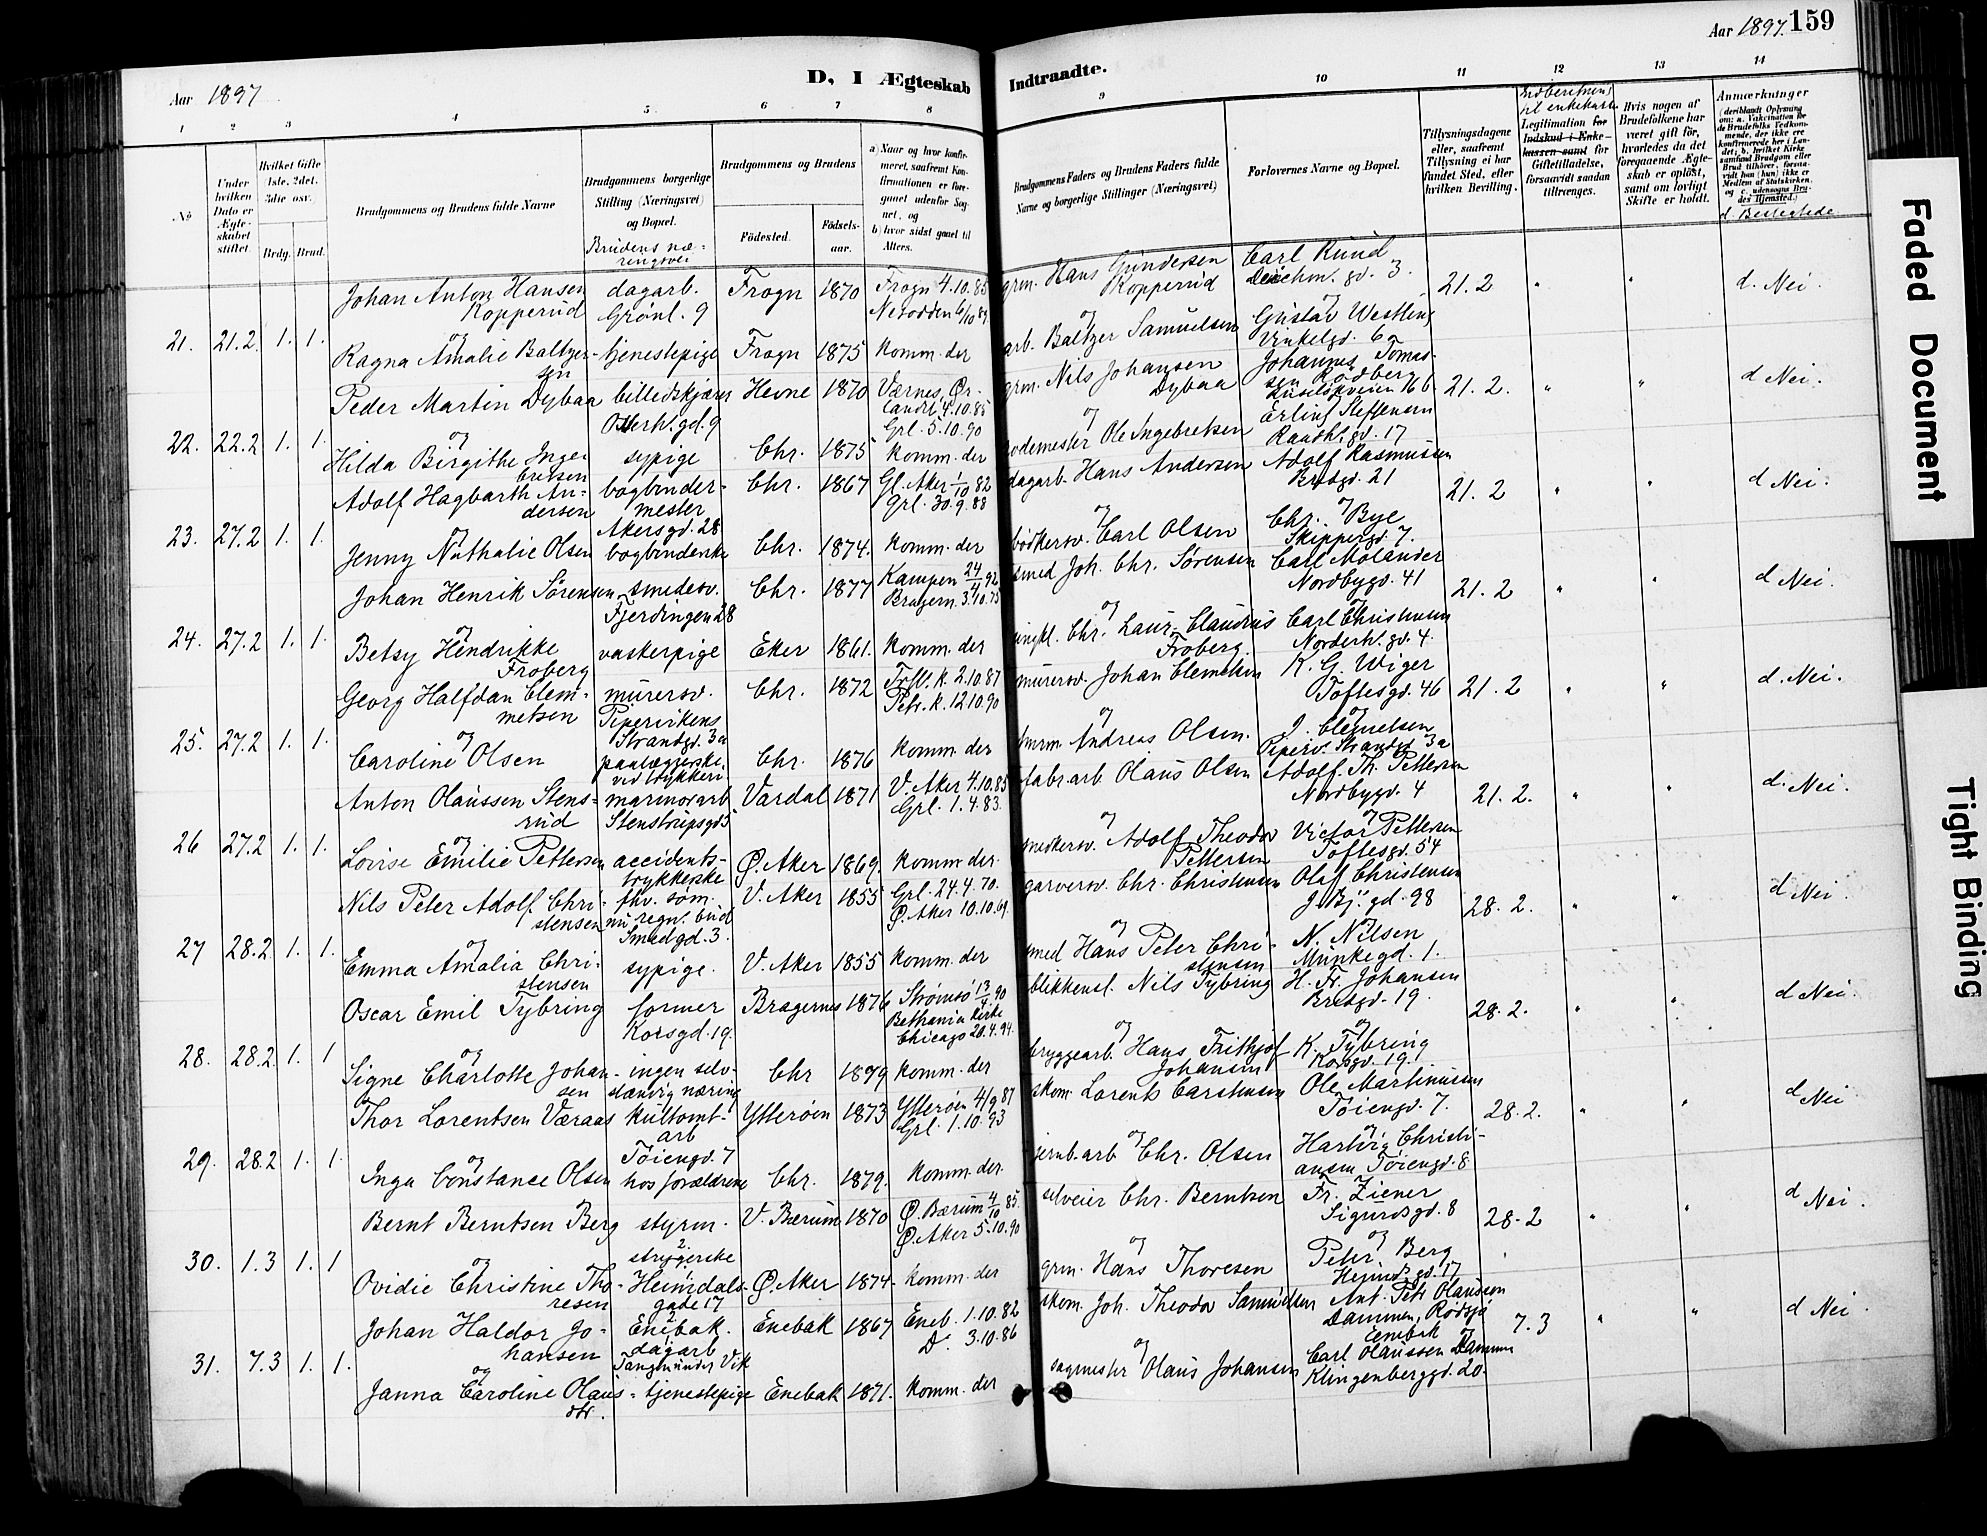 Aar 1897.
159
Aar 1897
D, I Ægteskab Indtraadte.
1 2 3 4 5 6 7 8 9 10 11 12 13 14
No
Under hvilken Dato er Ægteskabet stiftet.
Hvilket Gifte 1ste, 2det, 3die osv.
Brdg. Brud.
Brudgommens og Brudens fulde Navne
Brudgommens borgerlige Stilling (Næringsvei) og Bopæl.
Brudens næringsvei
Brudgommens og Brudens
Fødested.
Fødselsaar.
a) Naar og hvor konfirmeret, saafremt Konfirmationen er foregaaet udenfor Sognet, og
b) hvor sidst gaaet til Alters.
Brudgommens Faders og Brudens Faders fulde Navne og borgerlige Stillinger (Næringsvei)
Forlovernes Navne og Bopæl.
Tillysningsdagene eller, saafremt Tillysning ei har fundet Sted, efter hvilken Bevilling.
Legitimation for Indskud i Enkekassen samt for Giftetilladelse, forsaavidt saadan tiltrænges.
Hvis nogen af Brudefolkene har været gift før, hvorledes da det foregaaende Ægteskab er opløst, samt om lovligt Skifte er holdt.
Anmærkninger
d. Beslegtede
21. 21.2. 1. 1.
Johan Anton Hansen Kopperud
dagarb. Grønl. 9
Frogn 1870
Frogn 4.10.85
Nesodden 6/10 89
grm. Hans Gundersen Kopperud
Carl Ruud
Deichm. gd. 3.
21.2 " " d. Nei.
og
Ragna Amalie Baltzersen
tjenestepige
Frogn 1875 komm. der
arb. Baltzer Samuelsen
Gustav Westling
Vinkelgd. 6
22. 22.2 1. 1.
Peder Martin Dybaa
billedskjærer
Otterh. gd. 9
Hevne 1870
Værnes, Ør-
landet 4.10.85
Grl. 5.10.90
grm. Nils Johansen Dybaa
Johannes Tomassen Rødberg
16 b
21.2. " " d Nei.
og
Hilda Birgithe Ingebretsen
sypige
Chr. 1875 komm. der
rodemester Ole Ingebretsen
Erling Steffensen
Raadh. gd. 17
23. 27.2 1. 1.
Adolf Hagbarth Andersen
bogbindermester
Akersgd. 28
Chr. 1867
Gl. Aker 1/10 82
Grl. 30.9.88
dagarb. Hans Andersen
Adolf Rasmussen
Bredgd. 21
21.2 " " d Nei.
og
Jenny Nathalie Olsen
bogbinderske
Chr. 1874. komm. der
bødkersv. Carl Olsen
Chr. Bye
Skippergd. 7.
24. 27.2 1. 1.
Johan Henrik Sørensen
smedesv.
Fjerdingen 28
Chr. 1877
Kampen 24/4 92
Bragern. 3.10.75
smed Joh. Chr. Sørensen
Carl Molander
Nordbygd. 41
21.2 " " d Nei.
og
Betsy Hendrikke Froberg
vaskerpige
Eker 1861. komm. der
Chr. Laur. Claudius Froberg.
Carl Christensen
Norderh. gd. 4.
25. 27.2 1. 1.
Georg Halfdan Clemmetsen
murersv.
Pipervikens Strandgd. 3a
Chr. 1872
Trefl. k. 2.10.87
Petr. k. 12.10.90
murersv. Johan Clemetsen
K. G. Wiger
Toftesgd. 46
21.2 " " d. Nei.
og
Caroline Olsen
paalæggerske
ved trykkeri
Chr. 1876 komm. der
Andreas Olsen.
J. Clemetsen
Piperv. Strandgd 3a
26 27.2 1. 1.
Anton Olaussen Stensrud
marmorarb
Stenstrupsgd 5
Vardal 1871
V. Aker 4.10.85
Grl. 1.4.83.
fabr.arb. Olaus Olsen
Adolf Th. Pettersen
Nordbygd. 4
21.2. " " d. Nei.
og
Lovise Emilie Pettersen
accidentstrykkerske
Ø. Aker 1869. komm. der
snedkersv. Adolf Theodor Pettersen
Victor Pettersen
Toftesgd. 54
27 28.2. 1. 1.
Nils Peter Adolf Christensen
fhv. som.
nu regn. bud
Smedgd. 3.
V. Aker 1855
Grl. 24.4.70.
Ø. Aker 10.10.69.
garversv. Chr. Christensen
Olaf Christensen
J. Bj. gd. 98
28.2. " " d Nei.
og
Emma Amalia Christensen
sypige.
V. Aker 1855 komm. der
smed Hans Peter Christensen
N. Nilsen
Munkegd. 1.
28. 28.2. 1. 1
Oscar Emil Tybring
former
Korsgd. 19.
Bragernes 1876
Strømsø 13/4 90
Bethania kirke
Chicago 20.4.94.
blikkensl. Nils Tybring
H. Fr. Johansen
Bredgd. 19.
28.2. " " d Nei.
og
Signe Charlotte Johansen
ingen selvstændig næring
Chr 1879 komm. der
bryggearb. Hans Frithjof Johansen
K. Tybring
Korsgd. 19.
29. 28.2 1. 1.
Thor Lorentsen Væraas
kultomtarb
Tøiengd. 7
Ytterøen 1873
Ytterøen 4/9 87
Grl. 1.10.93
skom. Lorents Carstensen
Ole Martinussen
Tøiengd. 7.
28.2. " " d Nei
og
Inga Constance Olsen
hos forældrene
Chr. 1879. komm. der.
jernb.arb Chr. Olsen
Hartvig Christiansen Tøiengd. 8
30. 1.3 1. 1
Bernt Berntsen Berg
styrm.
V. Bærum 1870
Ø. Bærum 4/10 85.
Ø. Aker 5.10.90
selveier Chr. Berntsen
Fr. Ziener
Sigurdsgd. 8
28.2 " " d Nei.
og
Ovidie Christine Thoresen
strygerske
Heimdalsgade 17
Ø. Aker 1874. komm. der
grm. Hans Thoresen
Peter Berg
Heimd. gd. 17
31. 7.3 1. 1.
Johan Haldor Johansen
Enebak.
dagarb
Tangen under Vik
Enebak 1867
Eneb. 1.10.82
Do. 3.10.86
skom. Joh. Theodor Samuelsen
Ant. Petr Olaussen
Dammen, Rødsjø
Enebak
7.3 " " d Nei
og
Janna Caroline Olausdtr.
tjenestepige
Enebak 1871. komm. der
sagmester Olaus Johansen
Carl Olaussen Dammen
Klingenberggd. 20.
Faded Document
Tight Binding